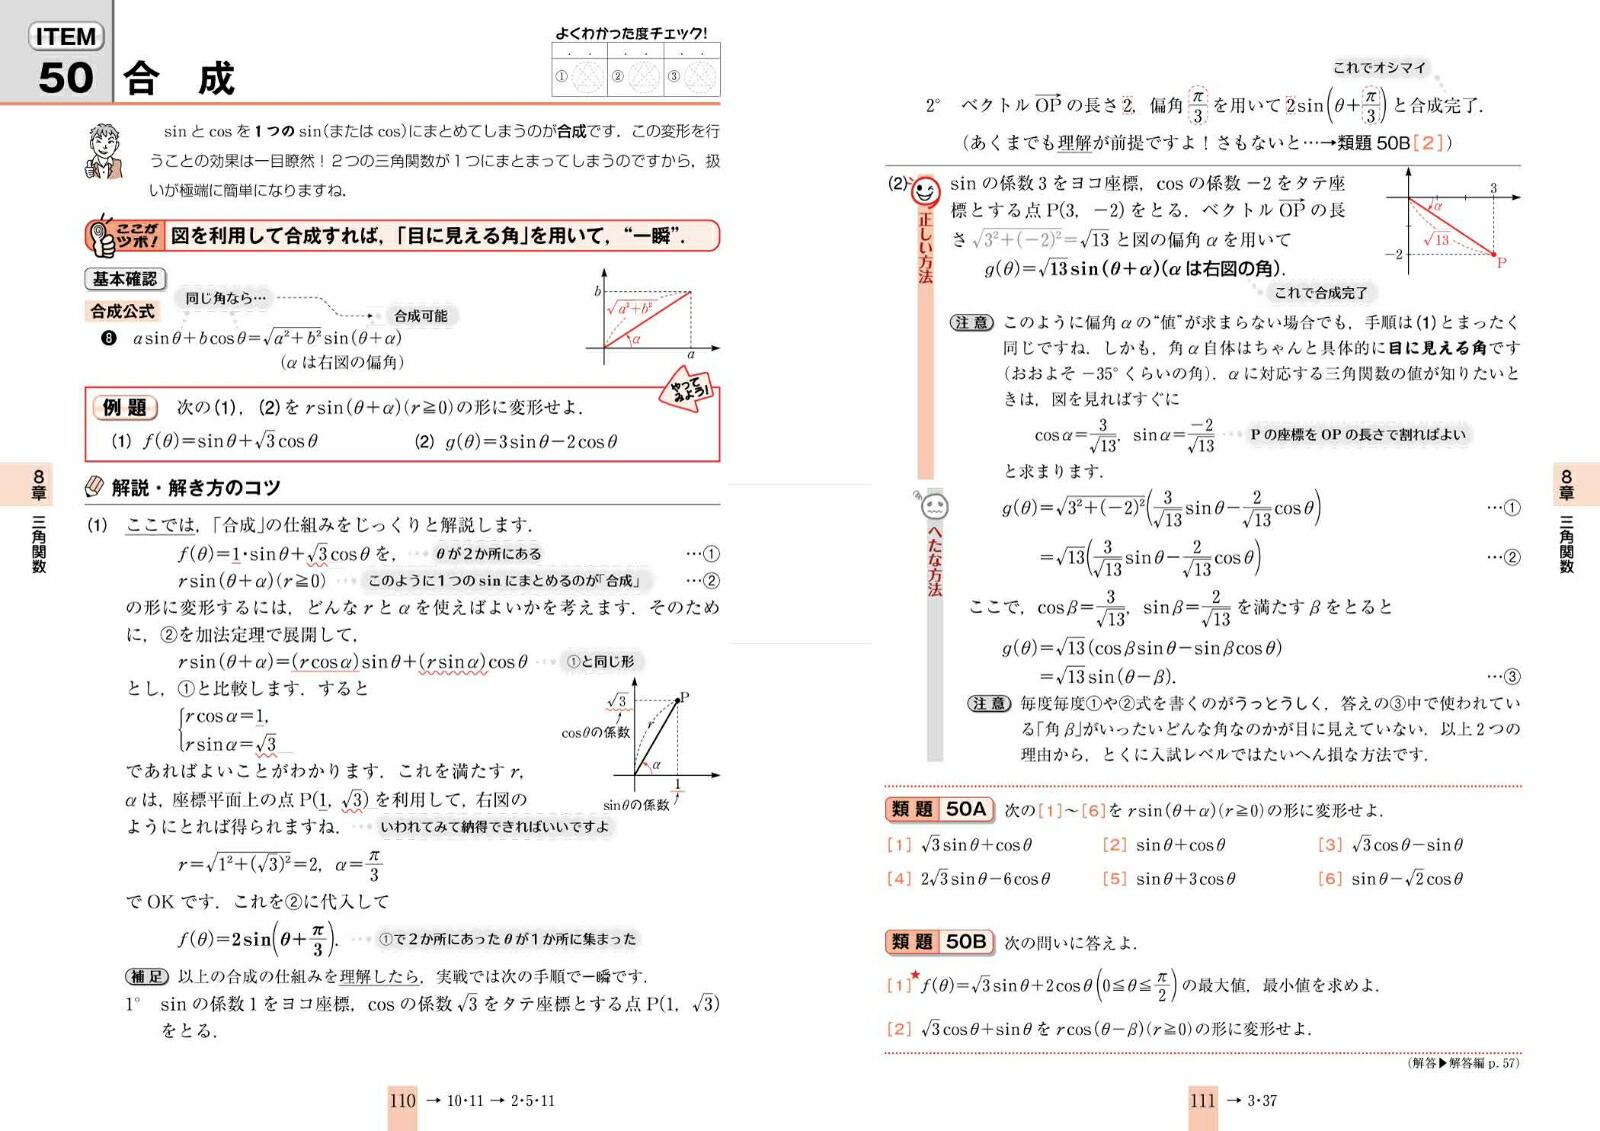 ITEM
50 合 成
よくわかった度チェック!
① ② ③
sinとcosを1つのsin(またはcos)にまとめてしまうのが合成です．この変形を行
うことの効果は一目瞭然！２つの三角関数が１つにまとまってしまうのですから，扱
いが極端に簡単になりますね．
ここがツボ! 図を利用して合成すれば，｢目に見える角｣を用いて，“一瞬”．
基本確認
同じ角なら…
合成公式
合成可能
❽ a sinθ+b cosθ=√(a²+b²) sin(θ+α)
(αは右図の偏角)
b
√(a²+b²)
α
a
やってみよう!
例 題 次の(1)，(2)を r sin(θ+α)(r≧0)の形に変形せよ．
(1) f(θ)=sinθ+√3 cosθ (2) g(θ)=3sinθ−2cosθ
解説・解き方のコツ
(1) ここでは，｢合成｣の仕組みをじっくりと解説します．
f(θ)=1・sinθ+√3 cosθ を， θが２か所にある …①
r sin(θ+α)(r≧0) このように１つのsinにまとめるのが｢合成｣ …②
の形に変形するには，どんな r と α を使えばよいかを考えます．そのため
に，②を加法定理で展開して，
r sin(θ+α)=(r cosα)sinθ+(r sinα)cosθ ①と同じ形
とし，①と比較します．すると
{r cosα=1,
r sinα=√3
であればよいことがわかります．これを満たす r，
αは，座標平面上の点P(1，√3)を利用して，右図の
ようにとれば得られますね． いわれてみて納得できればいいですよ
√3
P
r
cosθの係数
α
1
sinθの係数
r=√(1²+(√3)²)=2，α=π/3
でOKです．これを②に代入して
f(θ)=2sin(θ+π/3)． ①で２か所にあったθが１か所に集まった
補足 以上の合成の仕組みを理解したら，実戦では次の手順で一瞬です．
1° sinの係数1をヨコ座標，cosの係数√3をタテ座標とする点P(1，√3)
をとる．
8章 三角関数
110 → 10・11 → 2・5・11
これでオシマイ
2° ベクトルOPの長さ2，偏角π/3を用いて2sin(θ+π/3)と合成完了．
(あくまでも理解が前提ですよ！さもないと…→類題50B[2])
(2) sinの係数3をヨコ座標，cosの係数−2をタテ座
標とする点P(3，−2)をとる．ベクトルOPの長
さ√(3²+(−2)²)=√13と図の偏角αを用いて
g(θ)=√13 sin(θ+α)(αは右図の角)．
これで合成完了
正しい方法
3
α
√13
−2
P
注意 このように偏角αの“値”が求まらない場合でも，手順は(1)とまったく
同じですね．しかも，角α自体はちゃんと具体的に目に見える角です
(おおよそ−35°くらいの角)．αに対応する三角関数の値が知りたいと
きは，図を見ればすぐに
cosα=3/√13，sinα=−2/√13 Pの座標をOPの長さで割ればよい
と求まります．
へたな方法
g(θ)=√(3²+(−2)²)(3/√13 sinθ−2/√13 cosθ) …①
=√13(3/√13 sinθ−2/√13 cosθ) …②
ここで，cosβ=3/√13，sinβ=2/√13を満たすβをとると
g(θ)=√13(cosβsinθ−sinβcosθ)
=√13 sin(θ−β)． …③
注意 毎度毎度①や②式を書くのがうっとうしく，答えの③中で使われてい
る｢角β｣がいったいどんな角なのかが目に見えていない．以上２つの
理由から，とくに入試レベルではたいへん損な方法です．
類題 50A 次の[1]～[6]を r sin(θ+α)(r≧0)の形に変形せよ．
[1] √3 sinθ+cosθ [2] sinθ+cosθ [3] √3 cosθ−sinθ
[4] 2√3 sinθ−6cosθ [5] sinθ+3cosθ [6] sinθ−√2 cosθ
類題 50B 次の問いに答えよ．
[1]★ f(θ)=√3 sinθ+2cosθ(0≦θ≦π/2)の最大値，最小値を求めよ．
[2] √3 cosθ+sinθを r cos(θ−β)(r≧0)の形に変形せよ．
(解答▶解答編 p.57)
8章 三角関数
111 → 3・37